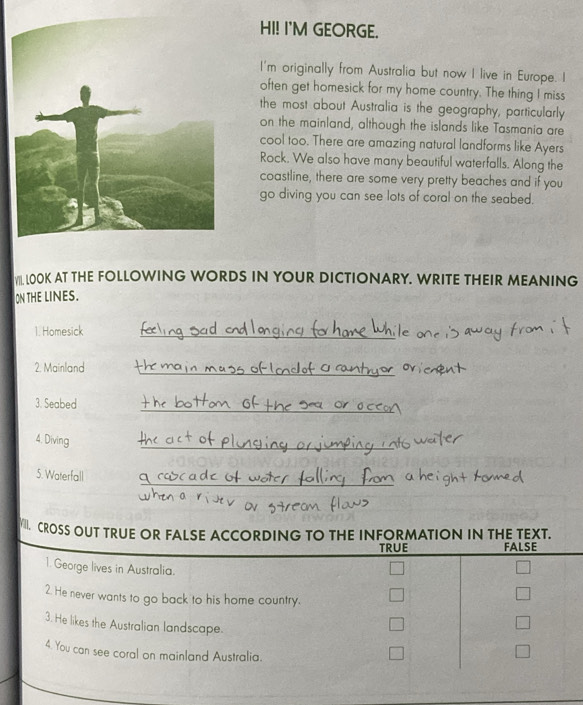 HI! I'M GEORGE.
I'm originally from Australia but now I live in Europe. I
often get homesick for my home country. The thing I miss
the most about Australia is the geography, particularly
on the mainland, although the islands like Tasmania are
cool too. There are amazing natural landforms like Ayers
Rock. We also have many beautiful waterfalls. Along the
coastline, there are some very pretty beaches and if you
go diving you can see lots of coral on the seabed.
VII. LOOK AT THE FOLLOWING WORDS IN YOUR DICTIONARY. WRITE THEIR MEANING
ON THE LINES.
1. Homesick feeling sad and longing for home While one is away from it
2. Mainland the main mass of land of a cantry or
3. Seabed the bottom of the sea or ocean
4. Diving the act of plunging or jumping into water
5. Waterfall a cascade of water falling from a height tormed
when a river or stream flows
VIII. CROSS OUT TRUE OR FALSE ACCORDING TO THE INFORMATION IN THE TEXT.
TRUE FALSE
1. George lives in Australia.
2. He never wants to go back to his home country.
3. He likes the Australian landscape.
4. You can see coral on mainland Australia.